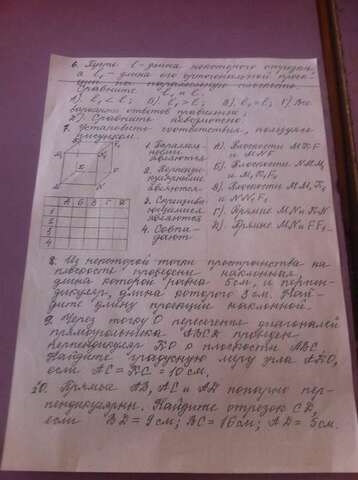 6. Пусть l - длина некоторого отрезка,
а l₁ - длина его ортогональной проек-
ции на
Сравните l₁ и l.
А). l₁ < l; Б). l₁ > l; В). l₁ = l; Г) Все
варианты ответов правильные;
Д) Сравнить невозможно.
7. Установить соответствие, пользуясь
рисунком.
1. Параллель-
ными
являются
2. Перпенди-
кулярными
являются
3. Скрещиваю-
щимися
являются
4. Совпа-
дают
А). Плоскости MKF
и MNF
Б). Плоскости
и M₁K₁F₁
В). Плоскости MM₁K₁
и NN₁F₁
Г). Прямые MN и KN
Д). Прямые MN и FF₁
А Б В Г Д
1
2
3
4
8. Из некоторой точки пространства на
плоскость проведены наклонная,
длина которой равна 5см, и перпен-
дикуляр, длина которого 3см. Най-
дите длину проекции наклонной.
9. Через точку O пересечения диагоналей
прямоугольника ABCD проведен
перпендикуляр KO к плоскости ABC.
Найдите градусную меру угла AKO,
если AC = KC = 10 см.
10. Прямые AB, AC и AD попарно пер-
пендикулярны. Найдите отрезок CD,
если BD = 9см; BC = 16см; AD = 5см.